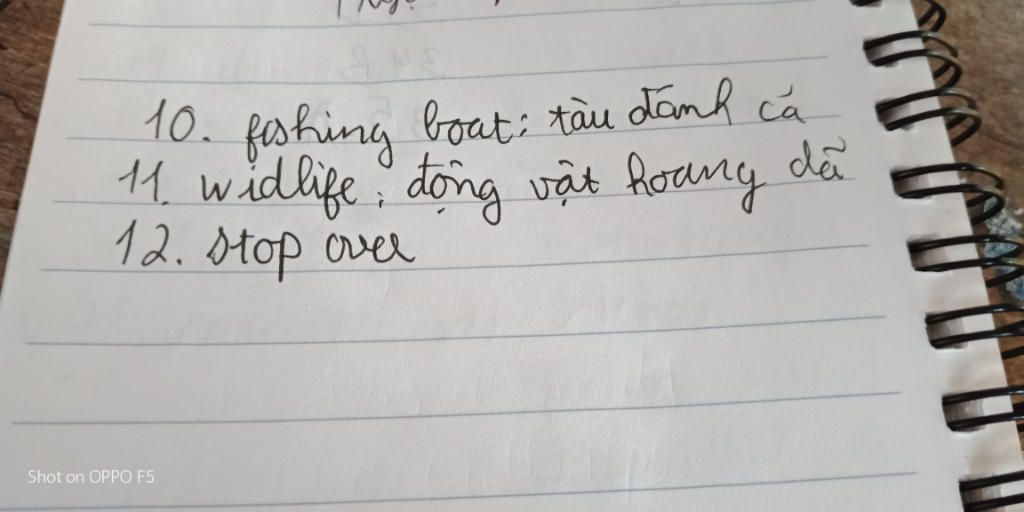 10. fishing boat: tàu đánh cá
11. widlife: động vật hoang dã
12. stop over
Shot on OPPO F5